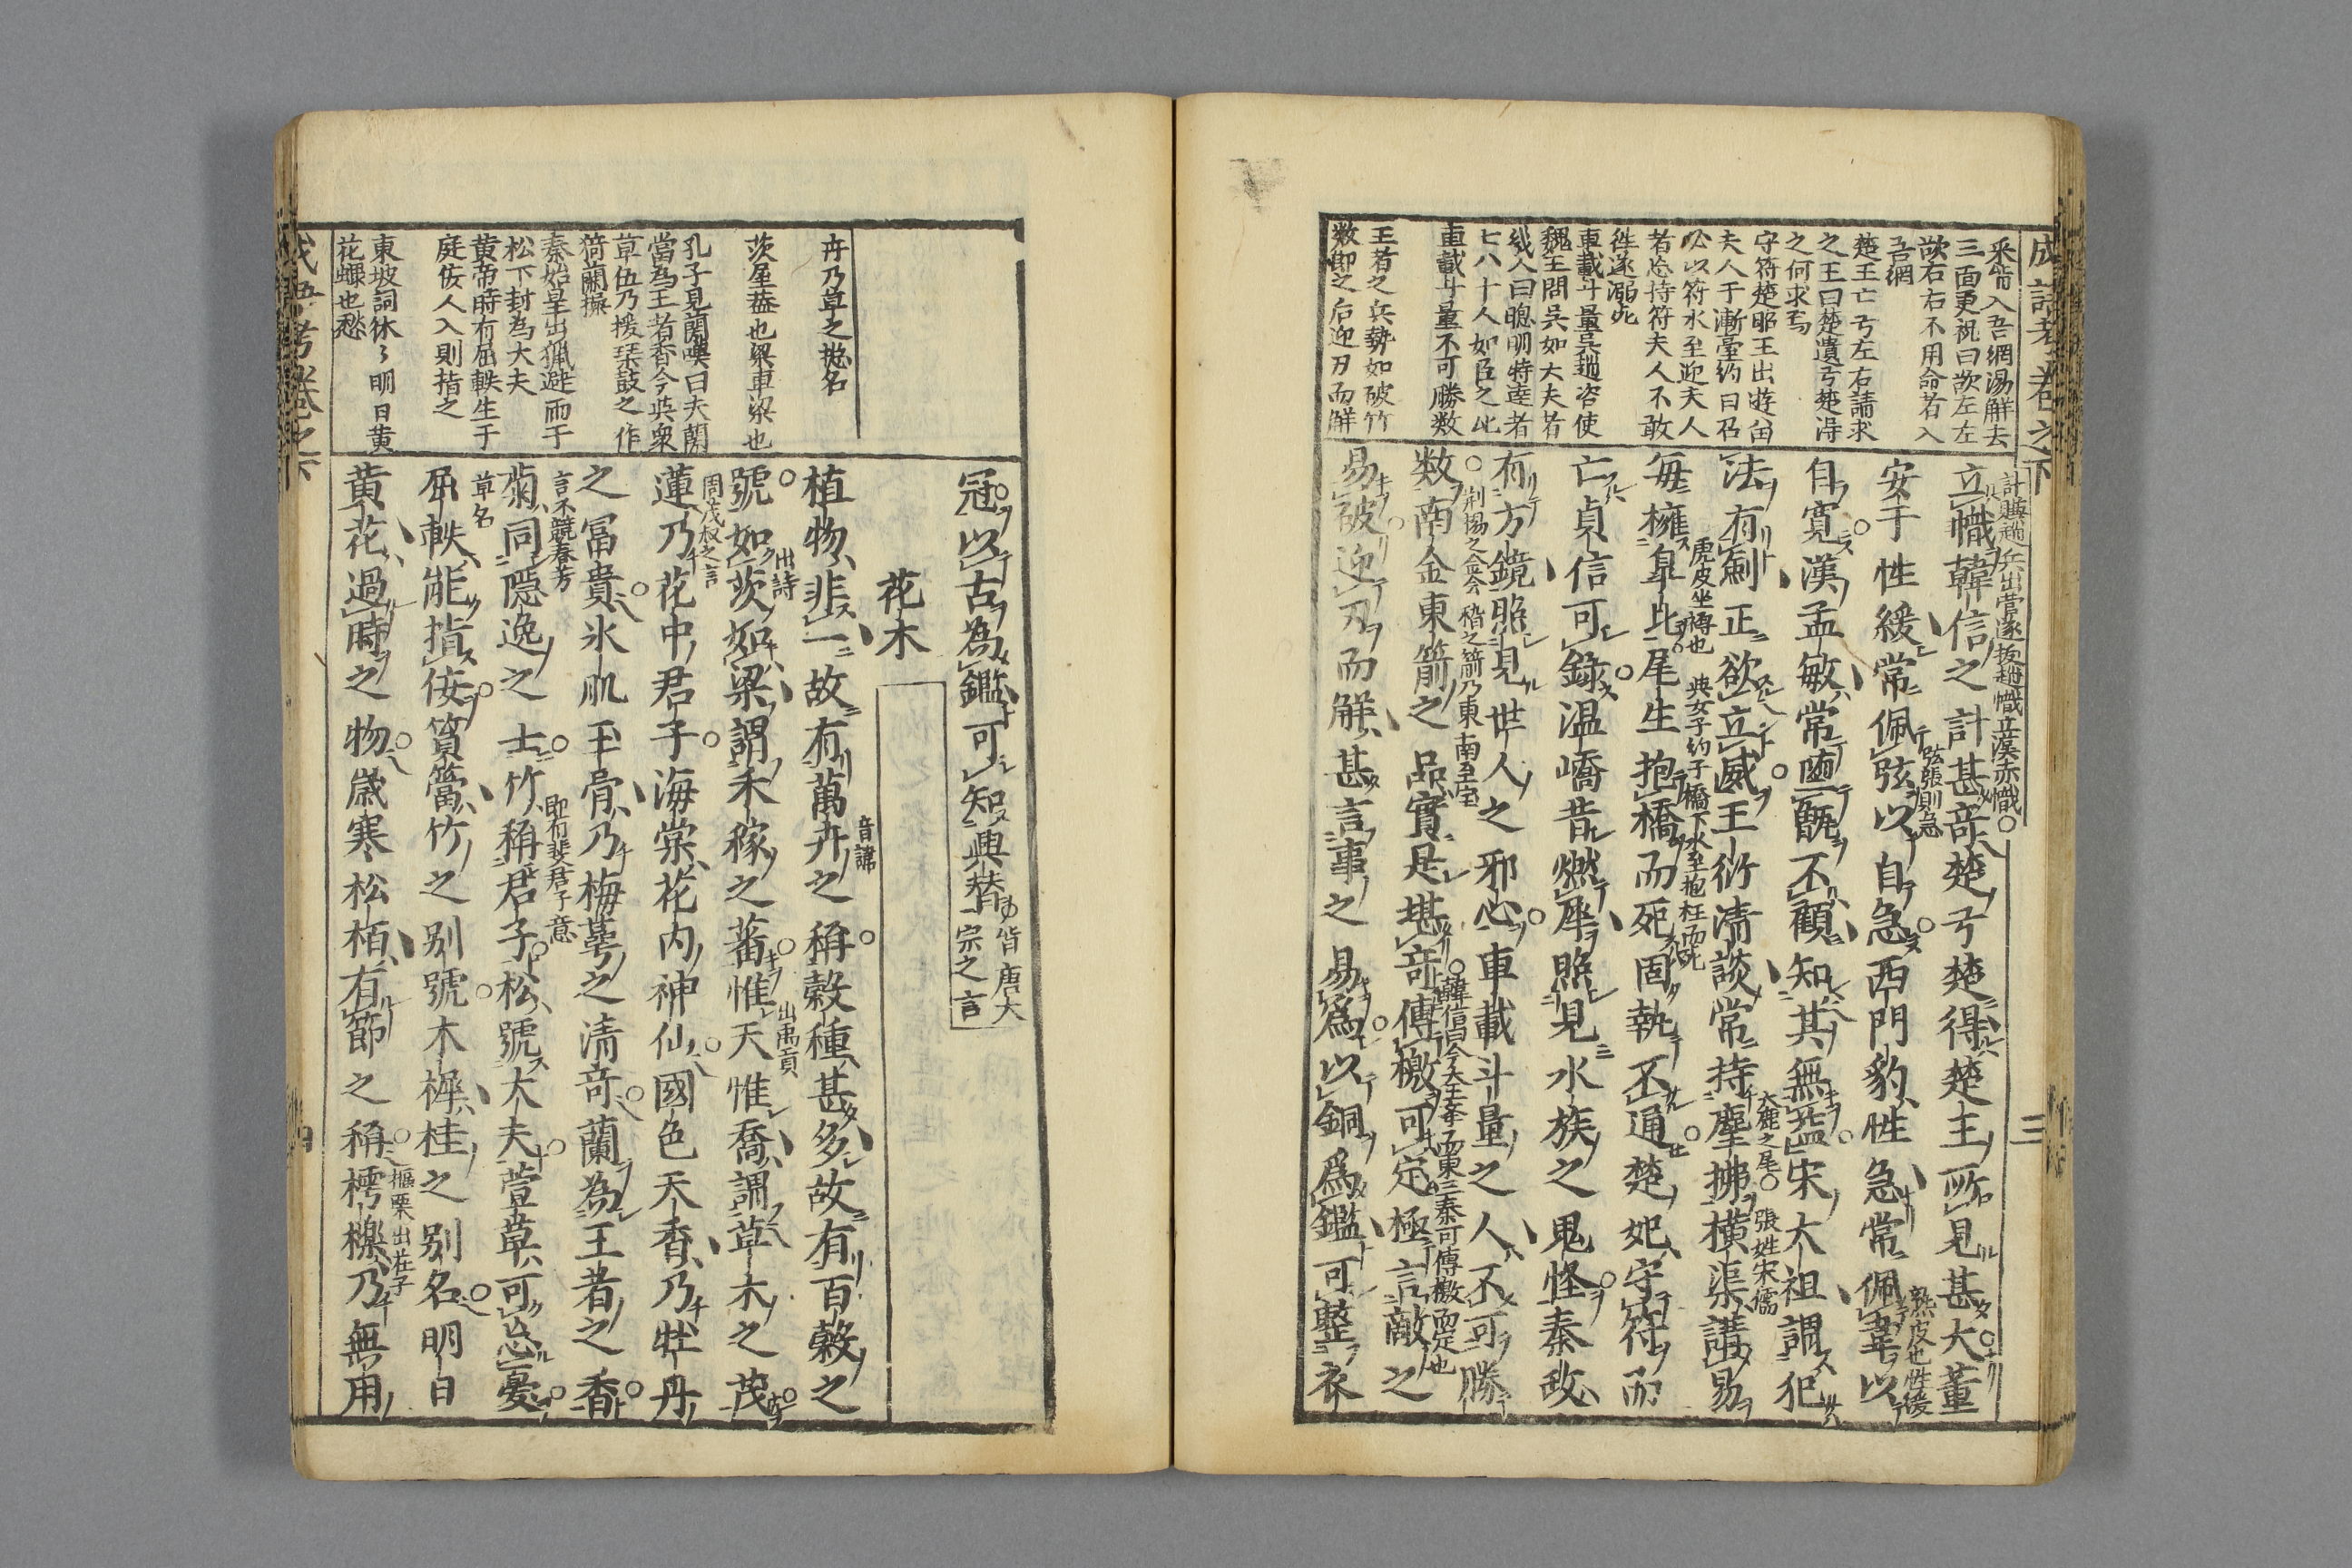 成語考卷之下
三
来皆入吾網湯觧去
三面更祝曰欲左左
欲右右不用命者入
吾網
楚王亡弓左右請求
之王曰楚遺弓楚淂
之何求焉
守符楚昭王出遊留
夫人于漸臺約曰召
必以符水至迎夫人
者忩持符夫人不敢
徃遂溺死
車載斗量吳趙咨使
魏王問吳如大夫者
幾人曰聰明特達者
七八十人如臣之比
車載斗量不可勝数
王者之兵勢如破竹
数節之后迎刃而觧
計賺趙兵出営遂拔趙幟立漢赤幟
立幟韓信之計甚竒楚弓楚得楚主所見甚大董
安于性緩常佩弦以自急西門豹性急常佩韋以
弦張則急
熟皮也性緩
自寛漢孟敏常堕甑不顧知其無益宋大祖謂犯
法有劍正欲立威王衍清談常持麈拂横渠講易
大鹿之尾
張姓宋儒
毎擁皐比尾生抱橋而死固執不通楚妃守符而
虎皮坐褥也
與女子約于橋下水至抱柱而死
亡貞信可録温嶠昔燃犀照見水族之鬼怪秦政
有方鏡照見世人之邪心車載斗量之人不可勝
数南金東箭之品實是堪竒傳檄可定極言敵之
荆揚之金会稽之箭乃東南至宝
韓信曰今大王挙而東三秦可傳檄而定也
易破迎刃而觧甚言事之易爲以銅爲鑑可整衣
冠以古為鑑可知興替
皆唐大宗之言
花木
卉乃草之捴名
茨屋葢也梁車梁也
孔子見蘭嘆曰夫蘭
當為王者香今與衆
草伍乃援琴鼓之作
猗蘭操
秦始皇出獵避雨于
松下封為大夫
黄帝時有屈軼生于
庭佞人入則指之
東坡詞休々明日黄
花蝶也愁
植物非一故有萬卉之稱穀種甚多故有百穀之
音諱
號如茨如梁謂禾稼之蕃惟夭惟喬謂草木之茂
出詩
出禹貢
蓮乃花中君子海棠花内神仙國色天香乃牡丹
周茂叔之言
之冨貴氷肌玉骨乃梅萼之清竒蘭為王者之香
菊同隠逸之士竹稱君子松號大夫萱草可忘憂
言不競春芳
即有斐君子意
屈軼能指佞篔簹竹之别號木樨桂之别名明日
草名
黄花過時之物歳寒松栢有節之稱樗櫟乃無用
樞栗出荘子